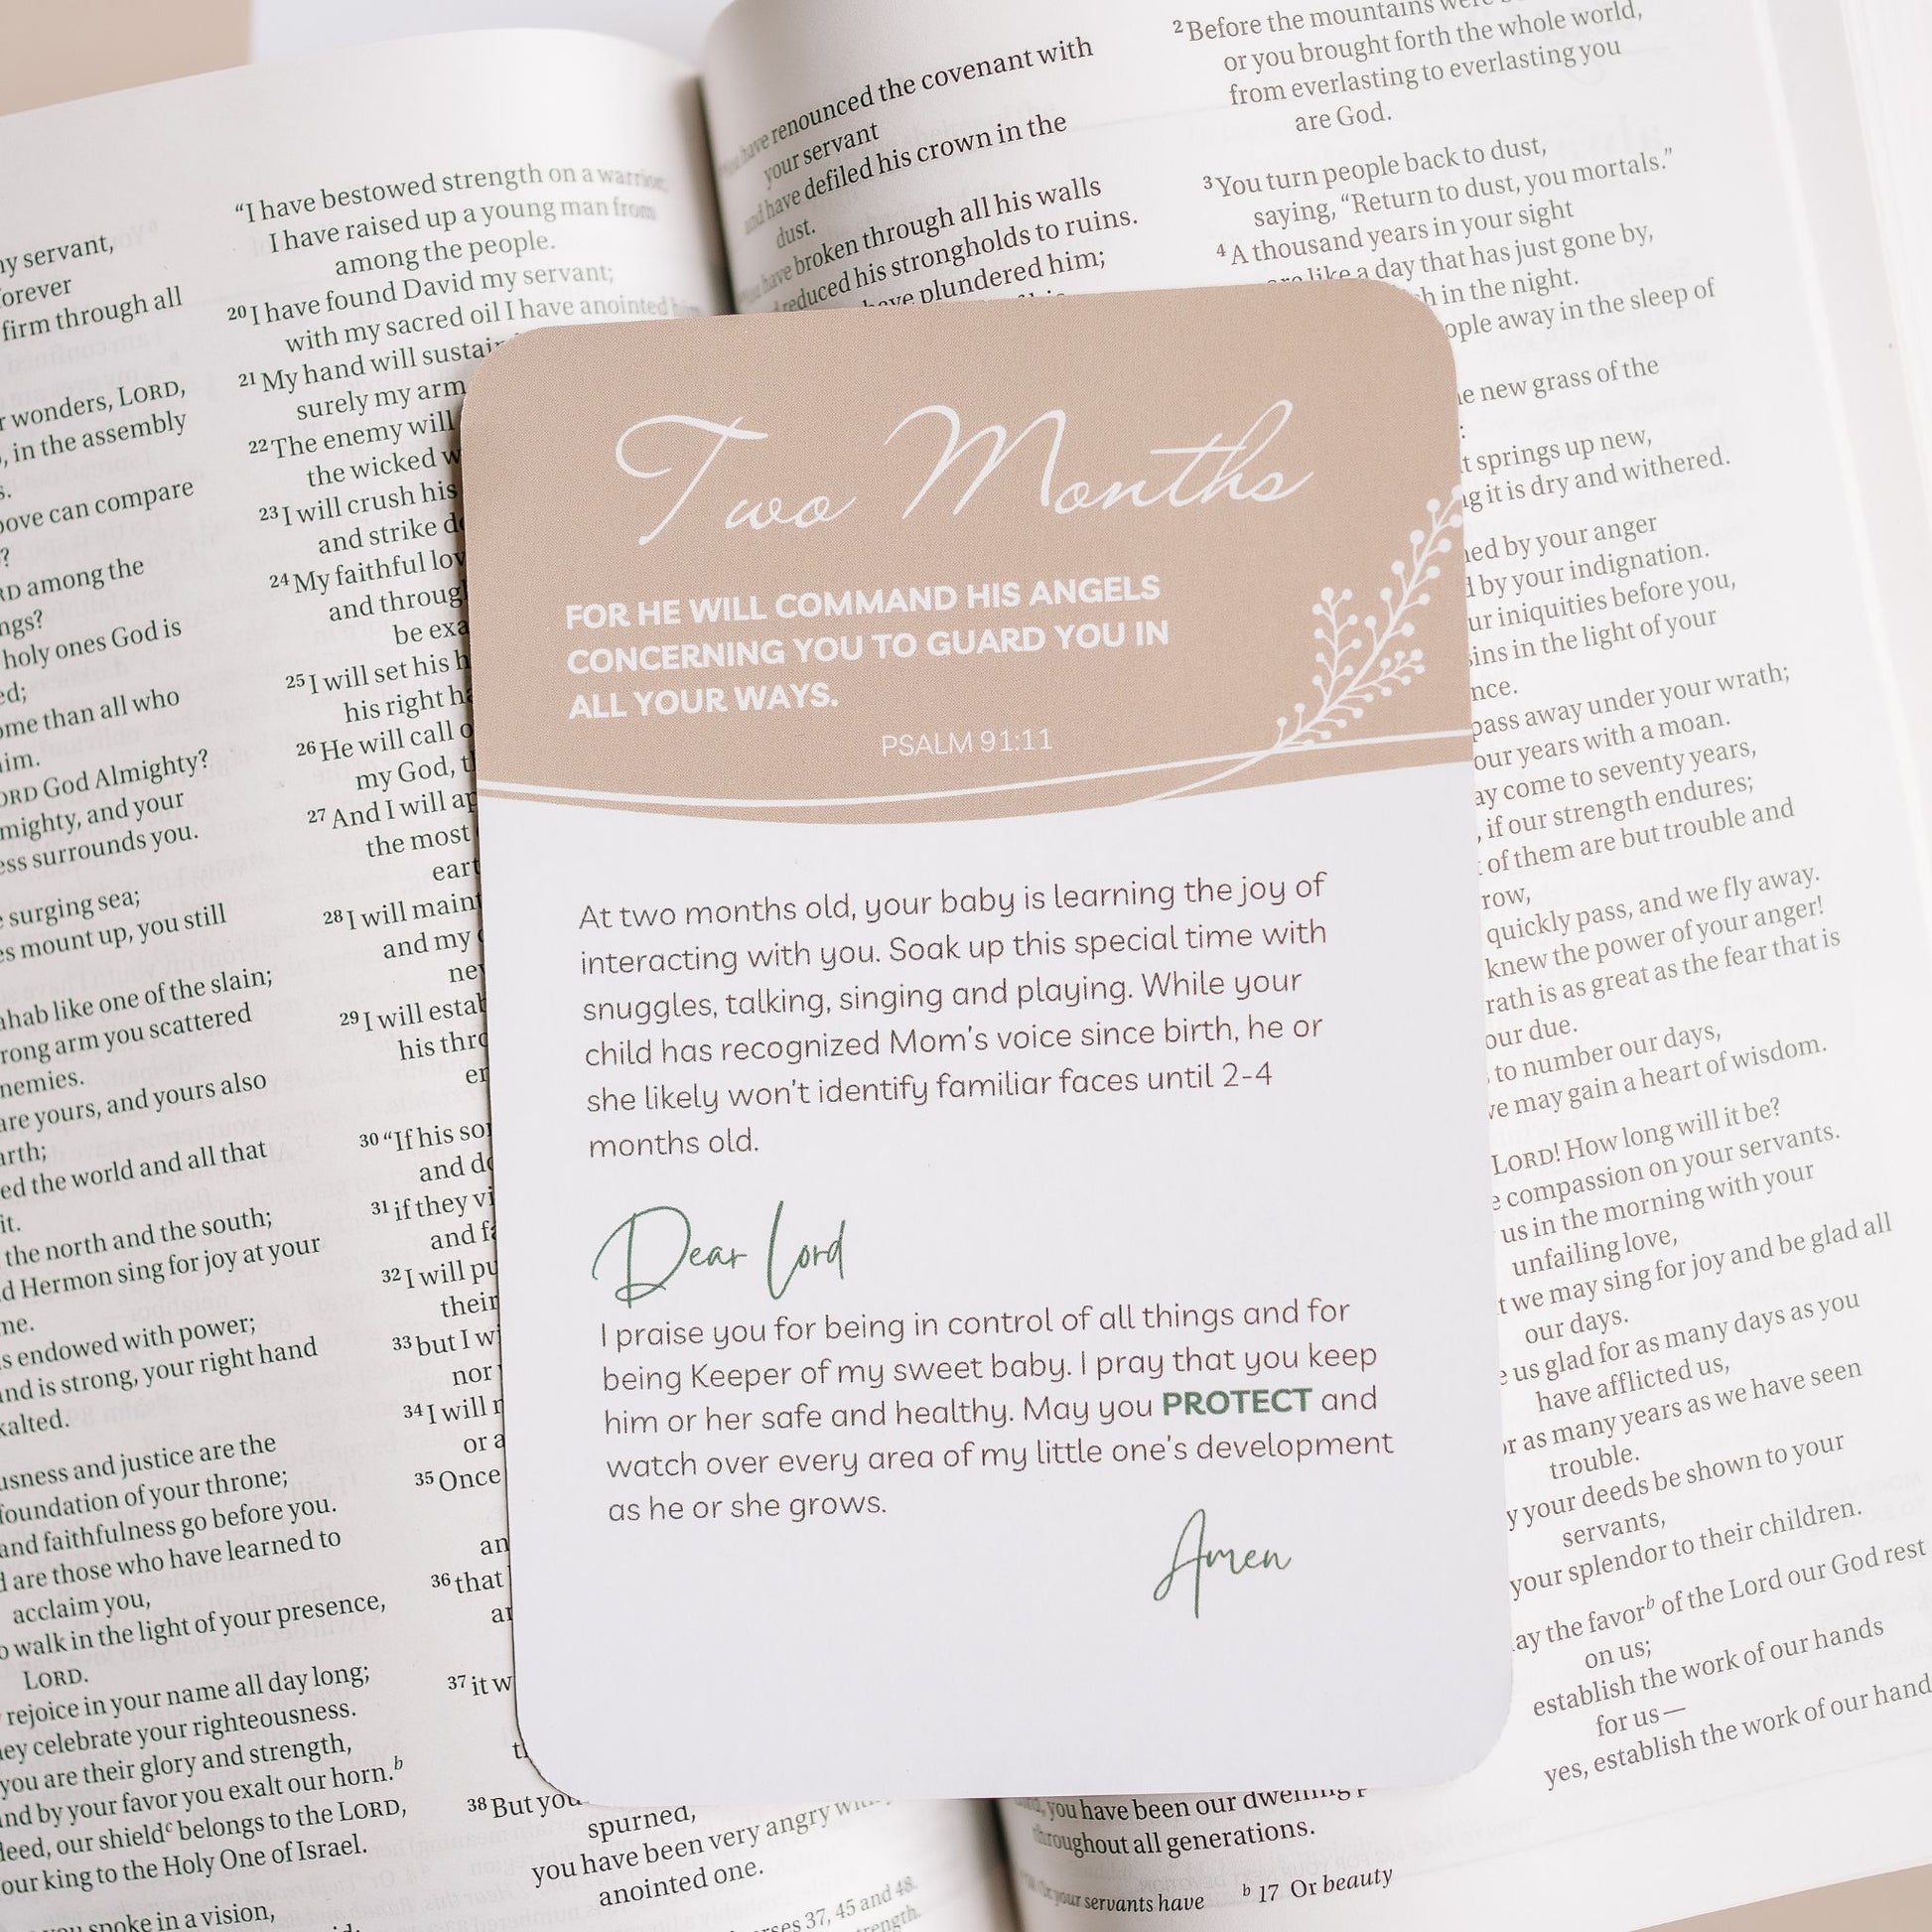 my servant,
forever
firm through all
wonders, LORD,
in the assembly
above can compare
?
LORD among the
holy ones God is
than all who
him.
LORD God Almighty?
mighty, and your
surrounds you.
surging sea;
mount up, you still
Rahab like one of the slain;
strong arm you scattered
enemies.
are yours, and yours also
earth;
the world and all that
it.
the north and the south;
Hermon sing for joy at your
endowed with power;
is strong, your right hand
exalted.
and justice are the
foundation of your throne;
and faithfulness go before you.
are those who have learned to
acclaim you,
walk in the light of your presence,
LORD.
rejoice in your name all day long;
they celebrate your righteousness.
you are their glory and strength,
and by your favor you exalt our horn.b
our shieldc belongs to the LORD,
our king to the Holy One of Israel.
you spoke in a vision,
“I have bestowed strength on a warrior;
I have raised up a young man from
among the people.
20 I have found David my servant;
with my sacred oil I have anointed
21 My hand will sustain
surely my arm
22 The enemy will
the wicked
23 I will crush his
and strike
24 My faithful
and through
be
25 I will set his
his right
26 He will call
my God,
27 And I will
the most
28 I will
and my
29 I will
his
30 “If his
and
31 if they
and
32 I will
their
33 but I
nor
34 I will
or
35 Once
36 that
37 it
38 But you
spurned,
you have been very angry
anointed one.
37, 45 and 48.
have renounced the covenant with
your servant
and have defiled his crown in the
dust.
have broken through all his walls
reduced his strongholds to ruins.
have plundered him;
Two Months
FOR HE WILL COMMAND HIS ANGELS
CONCERNING YOU TO GUARD YOU IN
ALL YOUR WAYS.
PSALM 91:11
At two months old, your baby is learning the joy of
interacting with you. Soak up this special time with
snuggles, talking, singing and playing. While your
child has recognized Mom's voice since birth, he or
she likely won't identify familiar faces until 2-4
months old.
Dear Lord
I praise you for being in control of all things and for
being Keeper of my sweet baby. I pray that you keep
him or her safe and healthy. May you PROTECT and
watch over every area of my little one's development
as he or she grows.
Amen
you have been our dwelling
throughout all generations.
your servants have b 17 Or beauty
2 Before the mountains were
or you brought forth the whole world,
from everlasting to everlasting you
are God.
3 You turn people back to dust,
saying, “Return to dust, you mortals.”
4 A thousand years in your sight
are like a day that has just gone by,
in the night.
people away in the sleep of
new grass of the
springs up new,
it is dry and withered.
by your anger
by your indignation.
our iniquities before you,
sins in the light of your
pass away under your wrath;
our years with a moan.
may come to seventy years,
if our strength endures;
of them are but trouble and
quickly pass, and we fly away.
knew the power of your anger!
wrath is as great as the fear that is
your due.
to number our days,
we may gain a heart of wisdom.
LORD! How long will it be?
compassion on your servants.
us in the morning with your
unfailing love,
we may sing for joy and be glad all
our days.
us glad for as many days as you
have afflicted us,
as many years as we have seen
trouble.
your deeds be shown to your
servants,
your splendor to their children.
the favorb of the Lord our God rest
on us;
establish the work of our hands
for us—
yes, establish the work of our